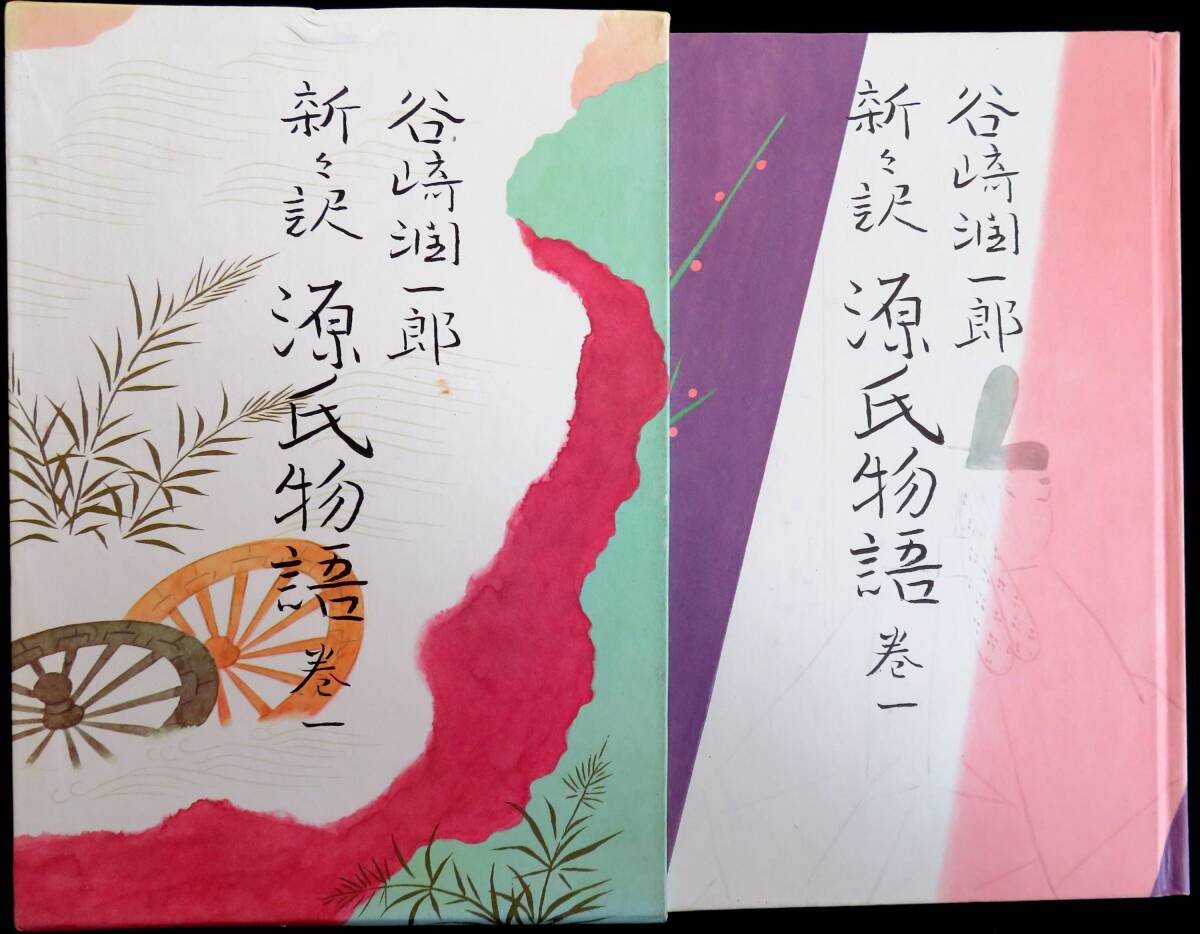 谷崎潤一郎
新々訳 源氏物語 巻一
谷崎潤一郎
新々訳 源氏物語 巻一